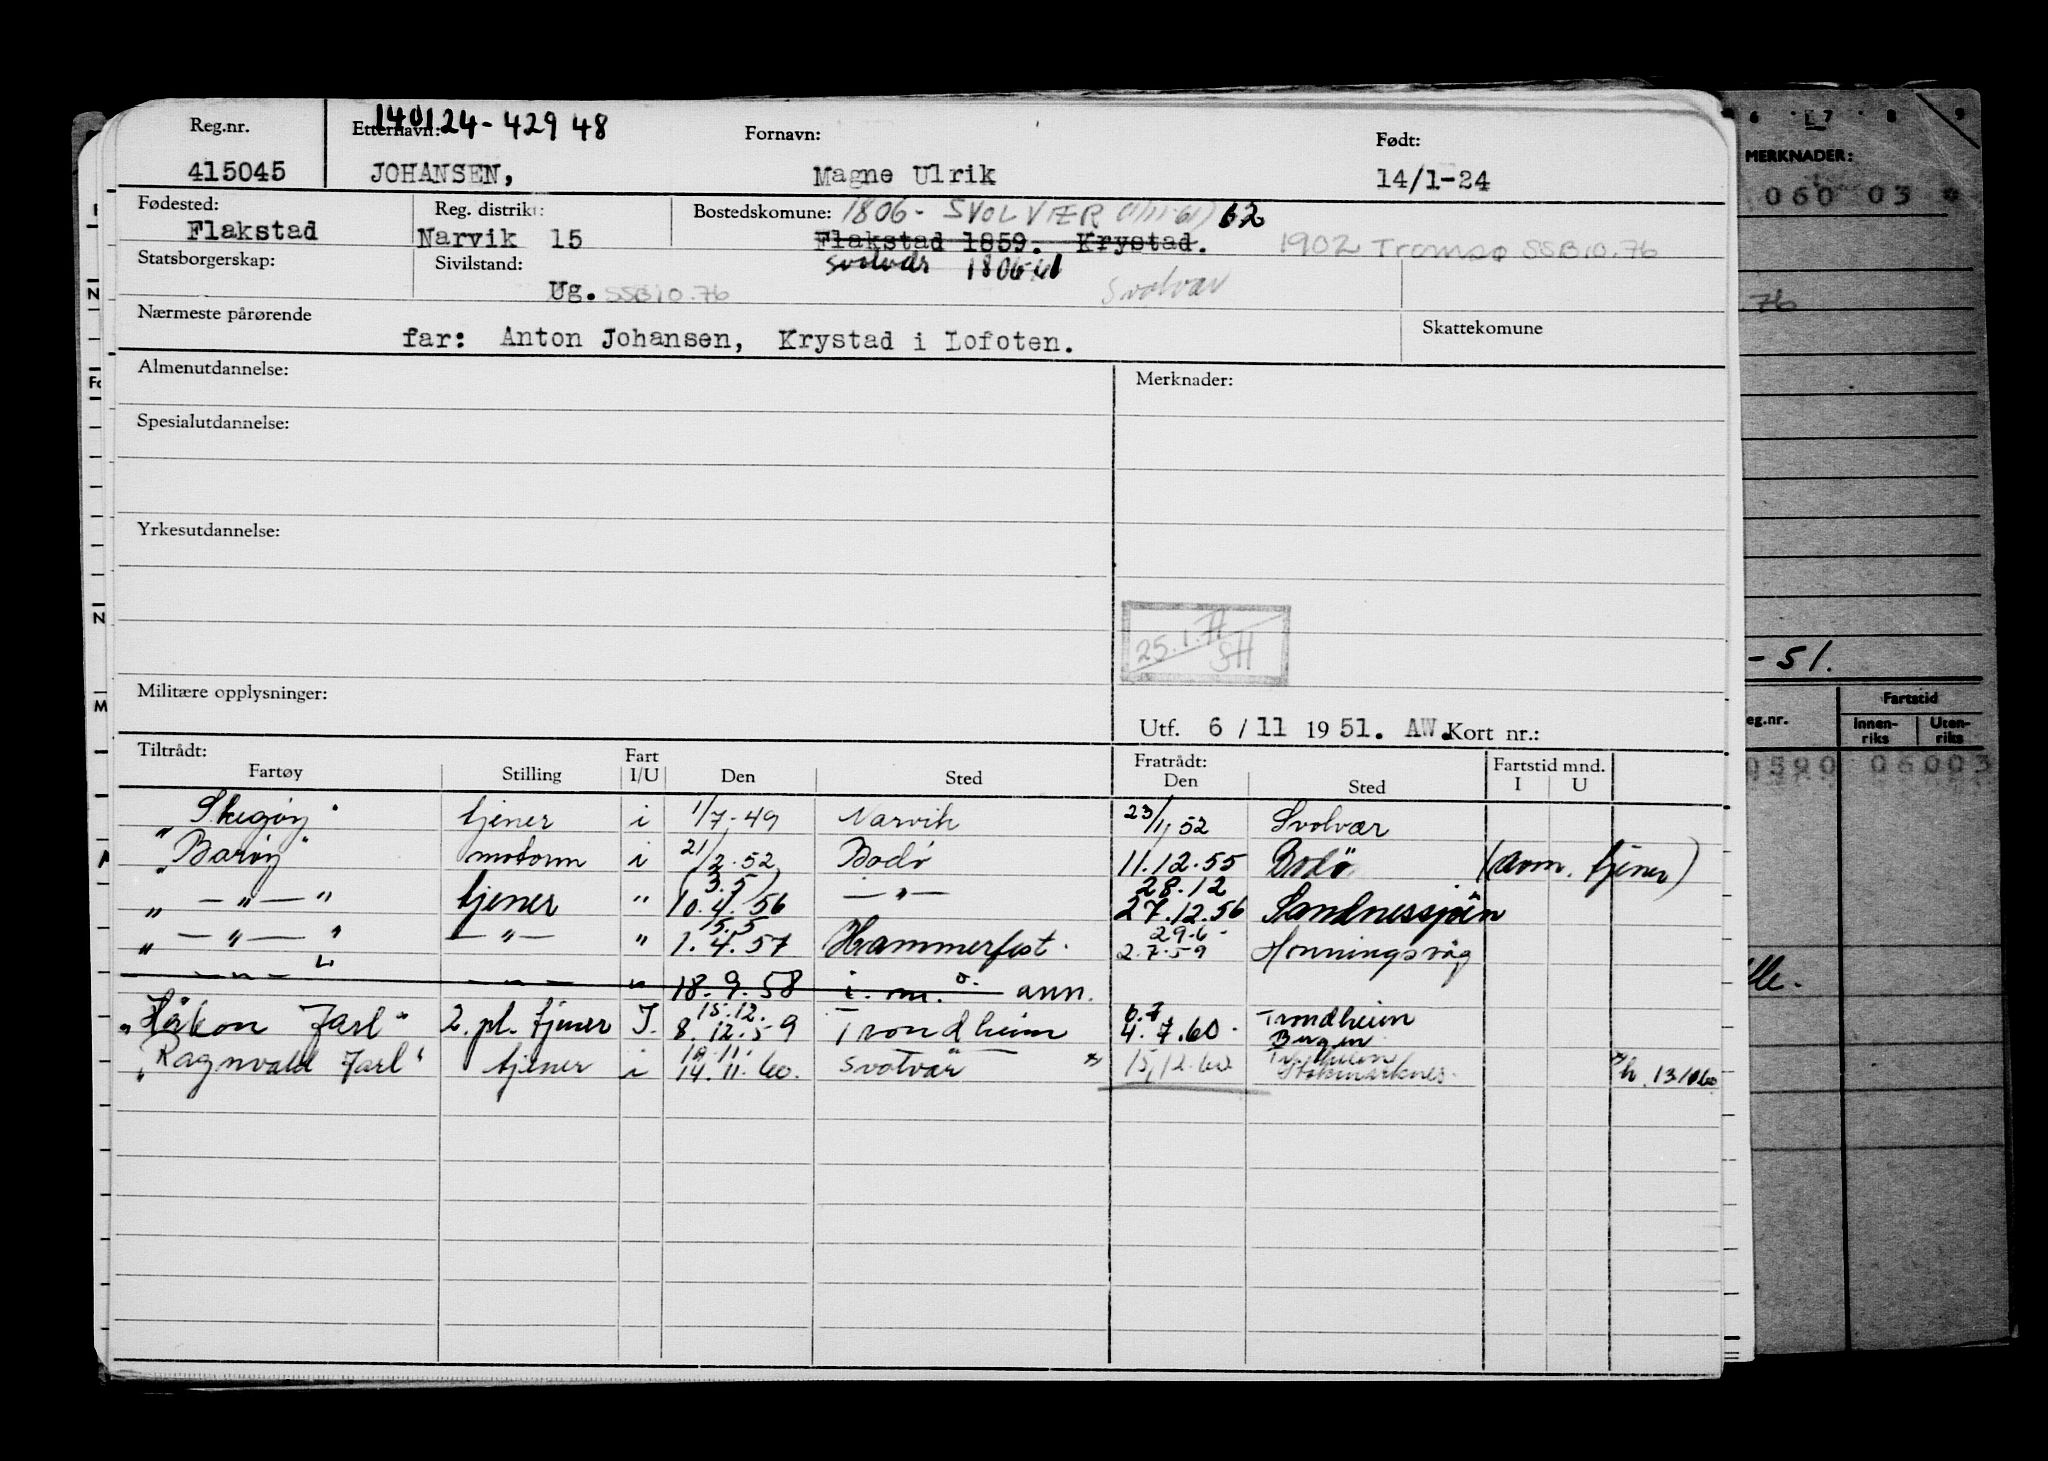 140124-42948
Reg.nr. Etternavn: Fornavn: Født:
415045 JOHANSEN, Magne Ulrik 14/1-24
Fødested: Reg. distrikt: Bostedskomune: 1806- SVOLVÆR 62
Flakstad Narvik 15 Flakstad 1859. Krystad. 1902 Tromsø SSB 10.76
Statsborgerskap: Sivilstand: Svolvær 1806
Ug. SSB 10.76 Svolvær
Nærmeste pårørende Skattekomune
far: Anton Johansen, Krystad i Lofoten.
Almenutdannelse: Merknader:
Spesialutdannelse:
Yrkesutdannelse:
25.1.
SH
Militære opplysninger:
Utf. 6 / 11 1951. AW. Kort nr.:
Tiltrådt: Fart Fratrådt: Fartstid mnd.
Fartøy Stilling I/U Den Sted Den Sted I U
" Skegøy " tjener i 1/7-49 Narvik 23/1 52 Svolvær
" Barøy " motorm i 21/2.52 Bodø 11.12.55 Bodø (avm. tjener)
3.5 28.12
" —"— " tjener " 10.4.56 —"— 27.12.56 Sandnessjøen
15.5 29.6
" —"— " —"— " 1.4.57 Hammerfest. 2.7.59 Honningsvåg
—"— " —"— " 18.9.58 i.m.o. ann.
15.12. 6.7 Trondheim
" Håkon Jarl " 2. pl. tjener I. 8.12.59 Trondheim 4.7.60. Bergen
" Ragnvald Jarl " tjener i 14.11.60. Svolvær 15.12.60 Stokmarknes.
MERKNADER:
6 7 8 9
060 03
76
-51.
eg.nr. Fartstid
Innen-riks Uten-riks
0590 06003